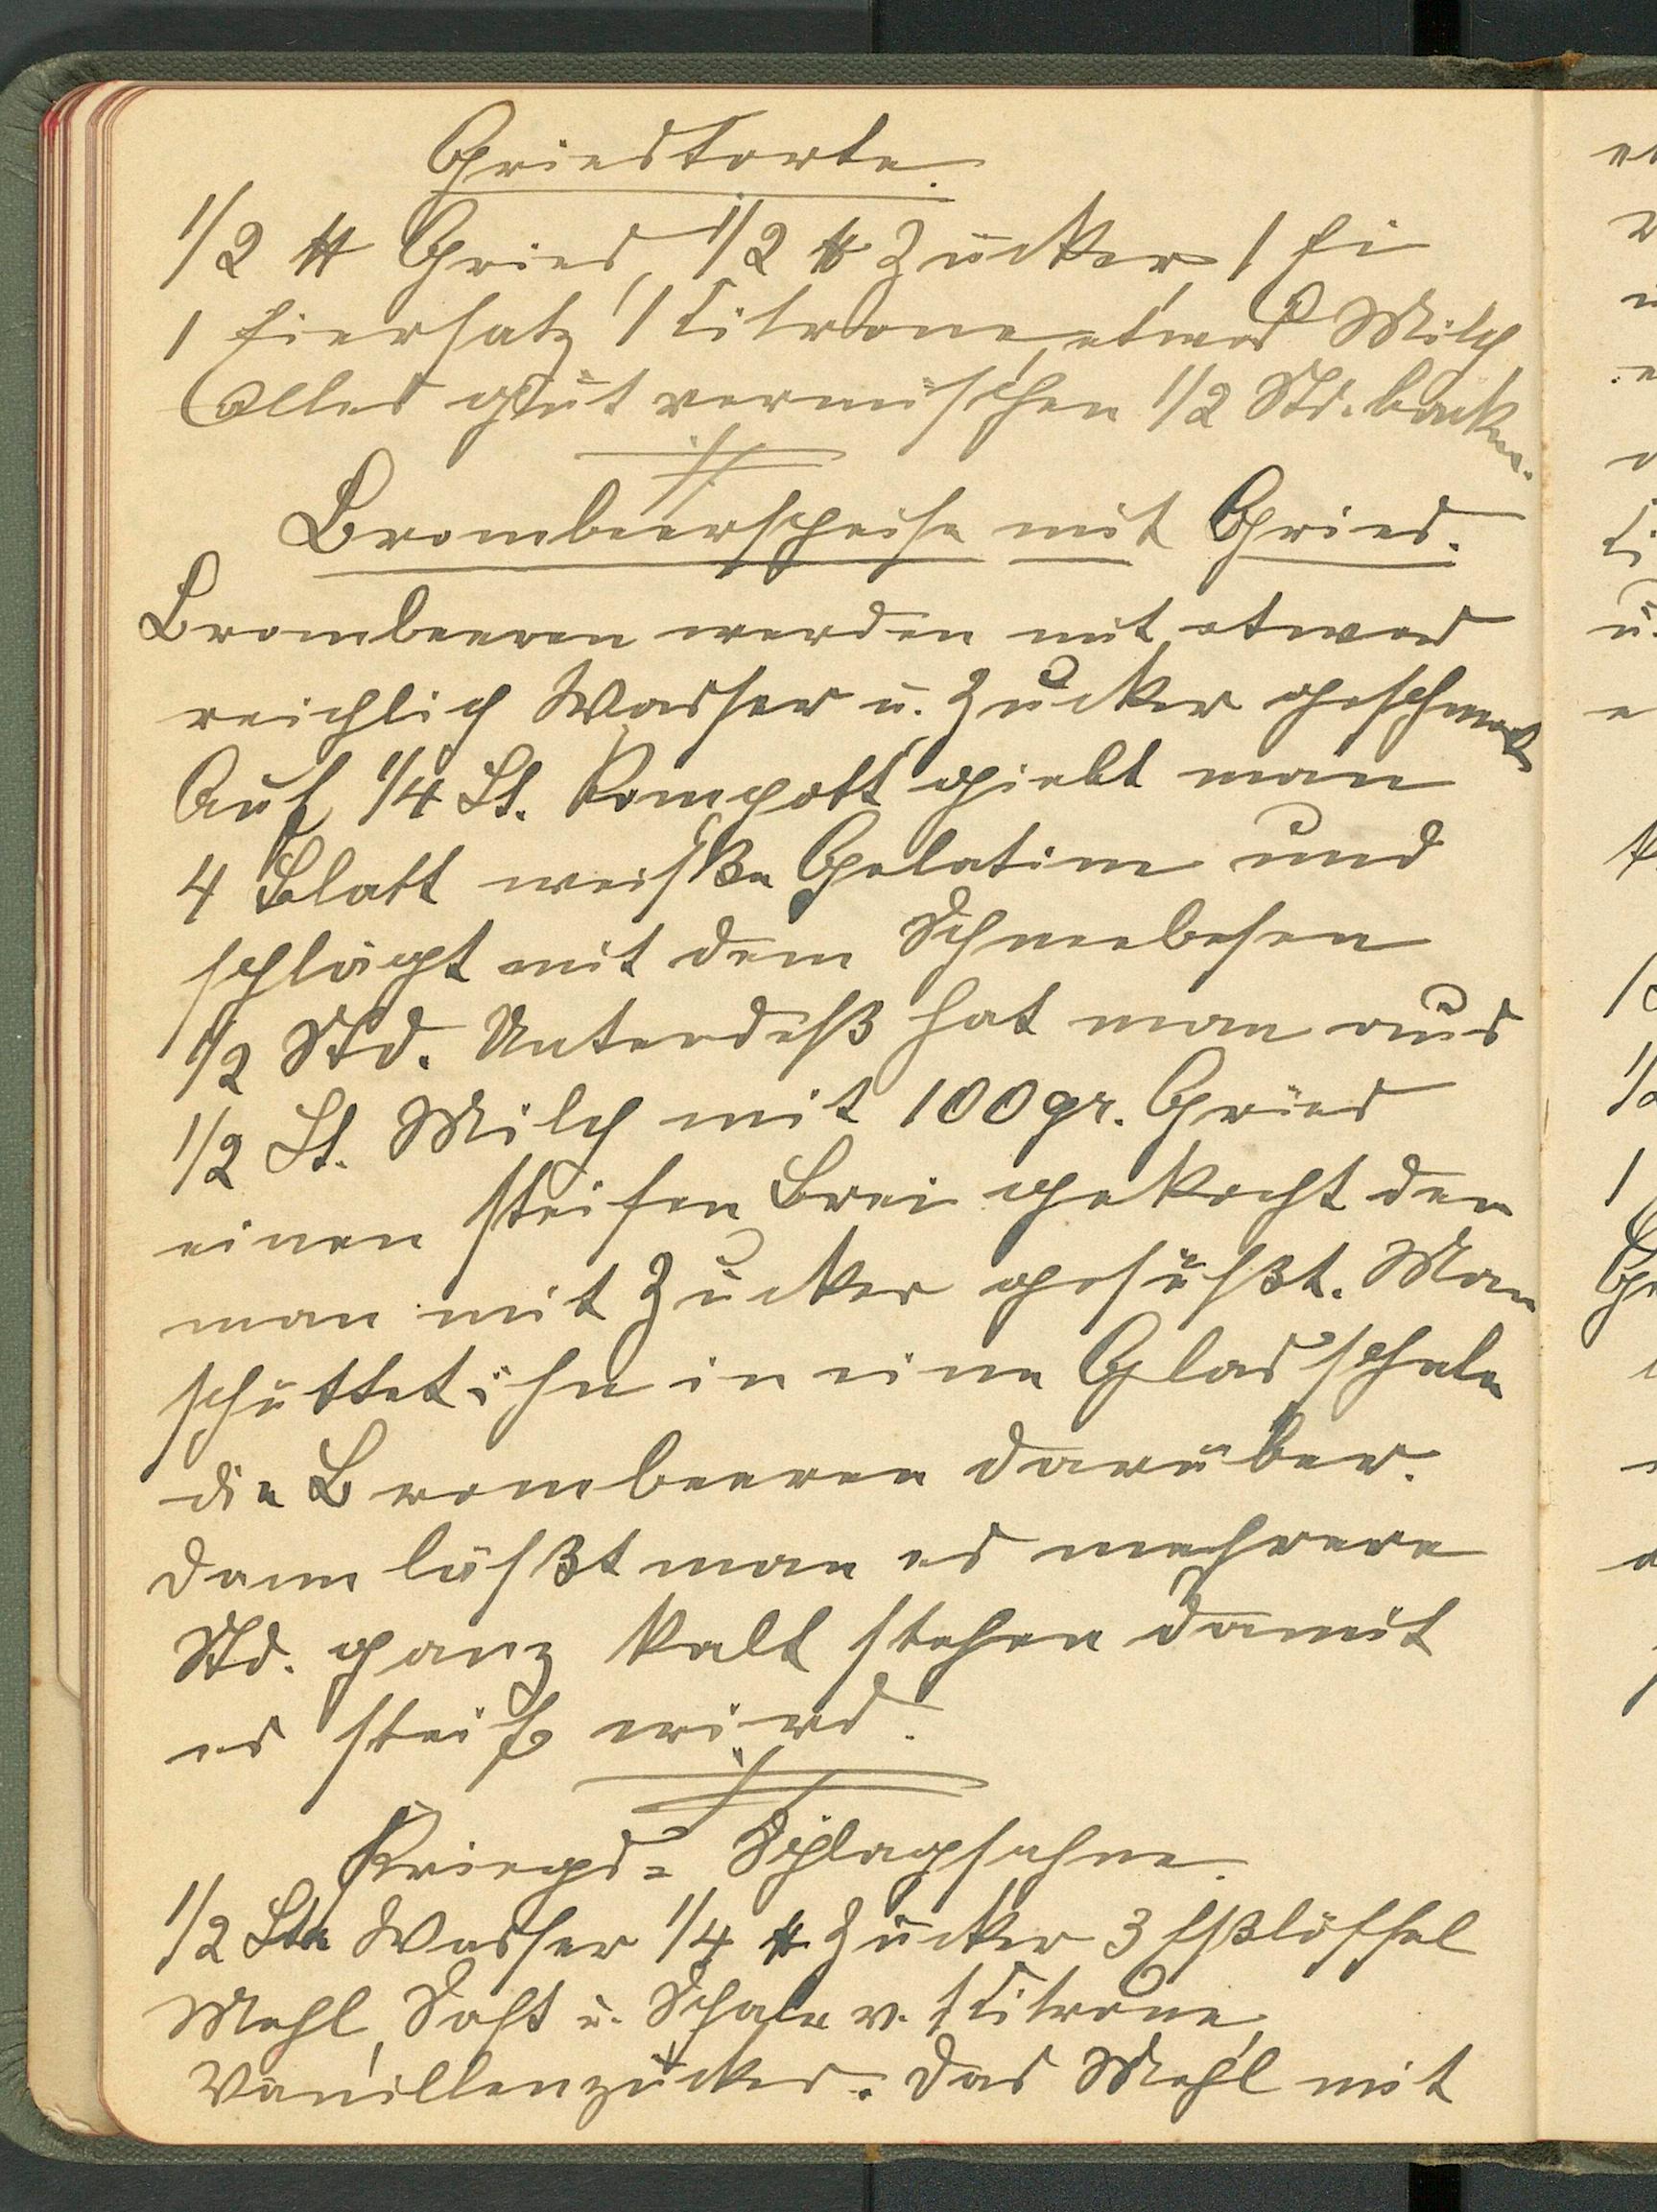 Griestorte.
1/2 ℔ Gries, 1/2 ℔ Zucker, 1 Ei
1 Eiersatz, 1 Citrone, etwas Milch
Alles gut vermischen 1/2 Std. backen.
Brombeerspeise mit Gries.
Brombeeren werden mit etwas
reichlich Wasser u. Zucker geschmort
Auf 1/4 Lt. Kompott giebt man
4 Blatt weiße Gelatine und
schlägt mit dem Schneebesen
1/2 Std. Unterdeß hat man aus
1/2 Lt. Milch mit 100 gr. Gries
einen steifen Brei gekocht den
man mit Zucker gesüßt. Man
schüttet ihn in eine Glasschale
die Brombeeren darüber.
Dann läßt man es mehrere
Std. ganz kalt stehen damit
es steif wird.
Kriegs= Schlagsahne.
1/2 Ltr Wasser 1/4 ℔ Zucker 3 Eßlöffel
Mehl, Saft u. Schale v. 1 Citrone,
Vanillenzucker. Das Mehl mit